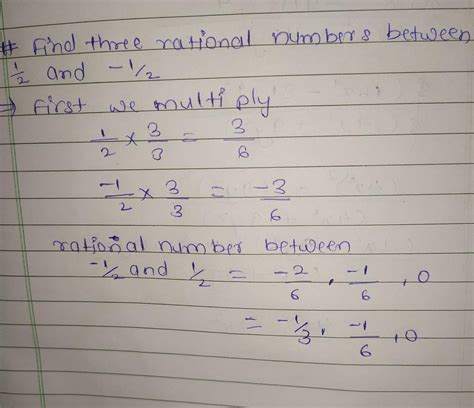 # Find three rational numbers between
1/2 and -1/2
⇒ First we multiply
1/2 × 3/3 = 3/6
-1/2 × 3/3 = -3/6
rational number between
-1/2 and 1/2 = -2/6, -1/6, 0
= -1/3, -1/6, 0